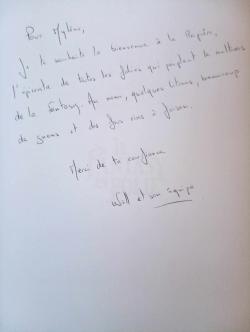 Pour Mylène,
Je te souhaite la bienvenue à la Repaire,
l'épicentre de toutes les folies qui peuplent le
de la Fantasy. Au menu, quelques litrons, beaucoup
de gnons et des fous rires à foison.
Merci de ta confiance
Will et son équipe